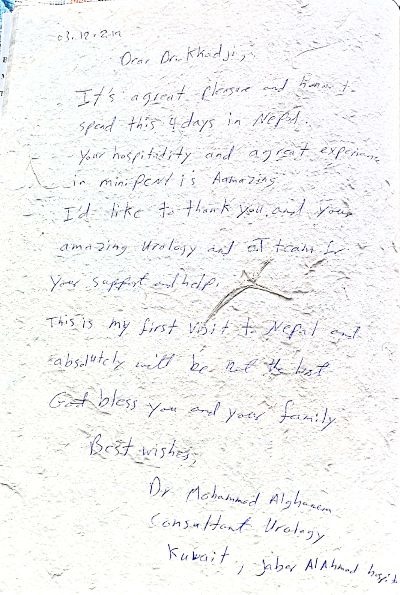 03.12.2
Dear Dr. Kkadji,
It's a great pleasure and honor to
spend this 4 days in Nepal.
Your hospitality and a great experience
in mini PCNL is Aamazing
I'd like to thank you and your
amazing Urology and OT team for
your support and help.
This is my first visit to Nepal and
absolutely will be not the last
God bless you and your family
Best wishes,
Dr Mohammad Alghanem
Consultant Urology
Kuwait, Jaber AlAhmad hospital